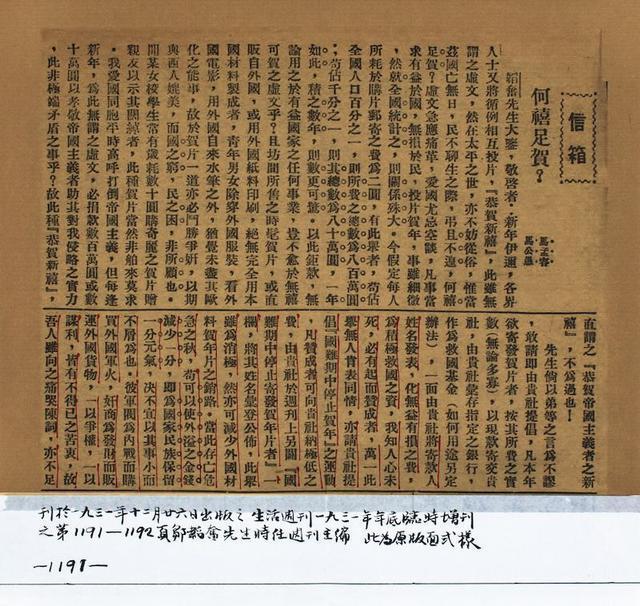 信箱
何禧足賀？
馬孟容
馬公愚
韜奮先生大鑒，敬啟者，新年伊邇，各界
人士又將循例相互投片，『恭賀新禧』，此雖無
謂之虛文，然在太平之世，亦不妨從俗，惟當
茲國亡無日，民不聊生之際，弔且不遑，何禧
足賀？虛文急應痛革，愛國尤忌空談，凡事當
求有益於國，無損於民，投片賀年，事雖細微
，然就全國統計之，則關係殊大。今假定每人
所耗於購片郵寄之費為二圓，有此舉者，苟佔
全國人口百分之一，則所費之總數為八百萬圓
；苟佔千分之一，則其總數為八十萬圓，一年
如此，積之數年，則數更可驚。以此鉅款，無
論用之於有益國家之任何事業，豈不愈於無禧
可賀之虛文乎？且坊間所售之時髦賀片，或直
販自外國，或用外國紙料印刷，絕無完全用本
國材料製成者，青年男女除穿外國服裝，看外
國電影，用外國自來水筆之外，猶覺未盡其歐
化之能事，故於賀片一道亦必鬥勝爭妍，以期
與西人媲美，而國之窮，民之困，非所顧也。
聞某女校學生常有歲耗數十圓購奇麗之賀片贈
親友以示其闊綽者，此種賀片當然非舶來莫求
。我愛國同胞平時高呼打倒帝國主義，但每逢
新年，為此無謂之虛文，必捐款數百萬圓或數
十萬圓以孝敬帝國主義者助其對我侵略之實力
，此非極端矛盾之事乎？故此種『恭賀新禧』，
直謂之『恭賀帝國主義者之新
禧』，不為過也！
先生倘以弟等之言為不謬
，敢請即由貴社提倡，凡本年
欲寄發賀片者，按其所費之實
數（無論多寡），以現款寄交貴
社，由貴社彙存指定之銀行，
作為救國基金（如何用途另定
辦法），一面由貴社將寄款人
姓名發表，化無益有損之費，
為積極救國之資，我知人心未
死，必有起而贊成者，萬一此
舉無人肯表同情，亦請貴社提
倡『國難期中停止賀年』之運動
，凡贊成者可向貴社納極低之
費，由貴社於週刊上另闢『國
難期中停止寄發賀年片者』一
欄，將其姓名彙登公佈，此舉
雖為消極，然亦可減少外國材
料賀年片之銷路。當此存亡危
急之秋，苟可以使外溢之金錢
減少一分，即為國家民族保留
一分元氣，決不宜以其事小而
不屑為也。彼軍閥為內戰而購
買外國軍火，奸商為發財而販
運外國貨物，一以爭權，一以
謀利，皆有不得已之苦衷，故
吾人雖向之痛哭陳詞，亦不足
刊於一九三一年十二月廿六日出版之生活週刊一九三一年年底臨時增刊
之第1191—1192頁鄒韜奮先生時任週刊主編 此為原版面式樣
—1191—